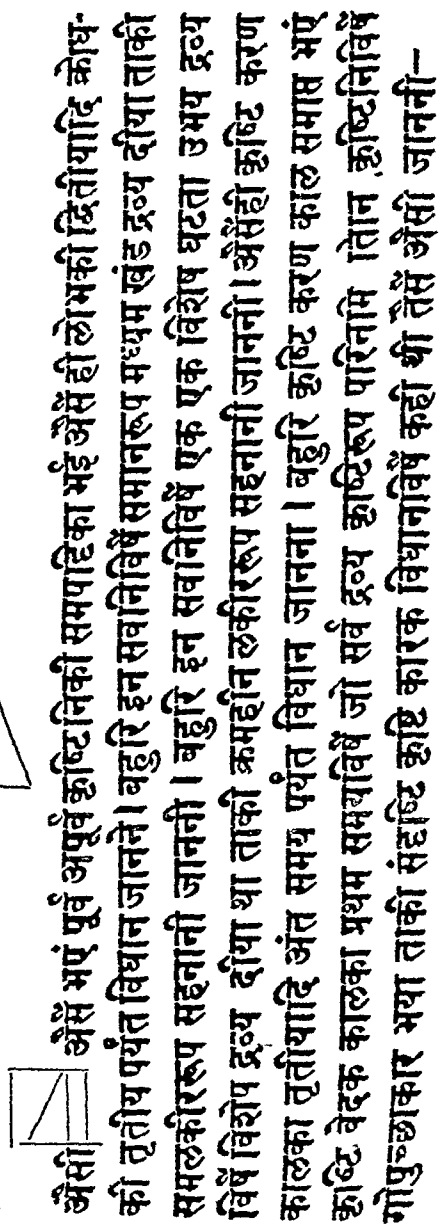 औसी औसैं भएं पूर्व अपूर्व कृष्टिनिकी समपाटिका भई औसैं ही लोभकी द्वितीयादि क्रोध-
की तृतीय पर्यंत विधान जानने । बहुरि इन सबनिविषैं समानरूप मध्यम खंड द्रव्य दीया ताकी
समलकीररूप सहनानी जाननी । बहुरि इन सबनिविषैं एक एक विशेष घटता उभय द्रव्य
विषैं विशेष द्रव्य दीया था ताकी क्रमहीन लकीररूप सहनानी जाननी । औसैंही कृष्टि करण
कालका तृतीयादि अंत समय पर्यंत विधान जानना । बहुरि कृष्टि करण काल समाप्त भएं
कृष्टि वेदक कालका प्रथम समयविषैं जो सर्व द्रव्य कृष्टिरूप परिनमि तिनि कृष्टिनिविषैं
गोपुच्छाकार भया ताकी संदृष्टि कृष्टि कारक विधानविषैं कही थी तैसैं औसी जाननी–